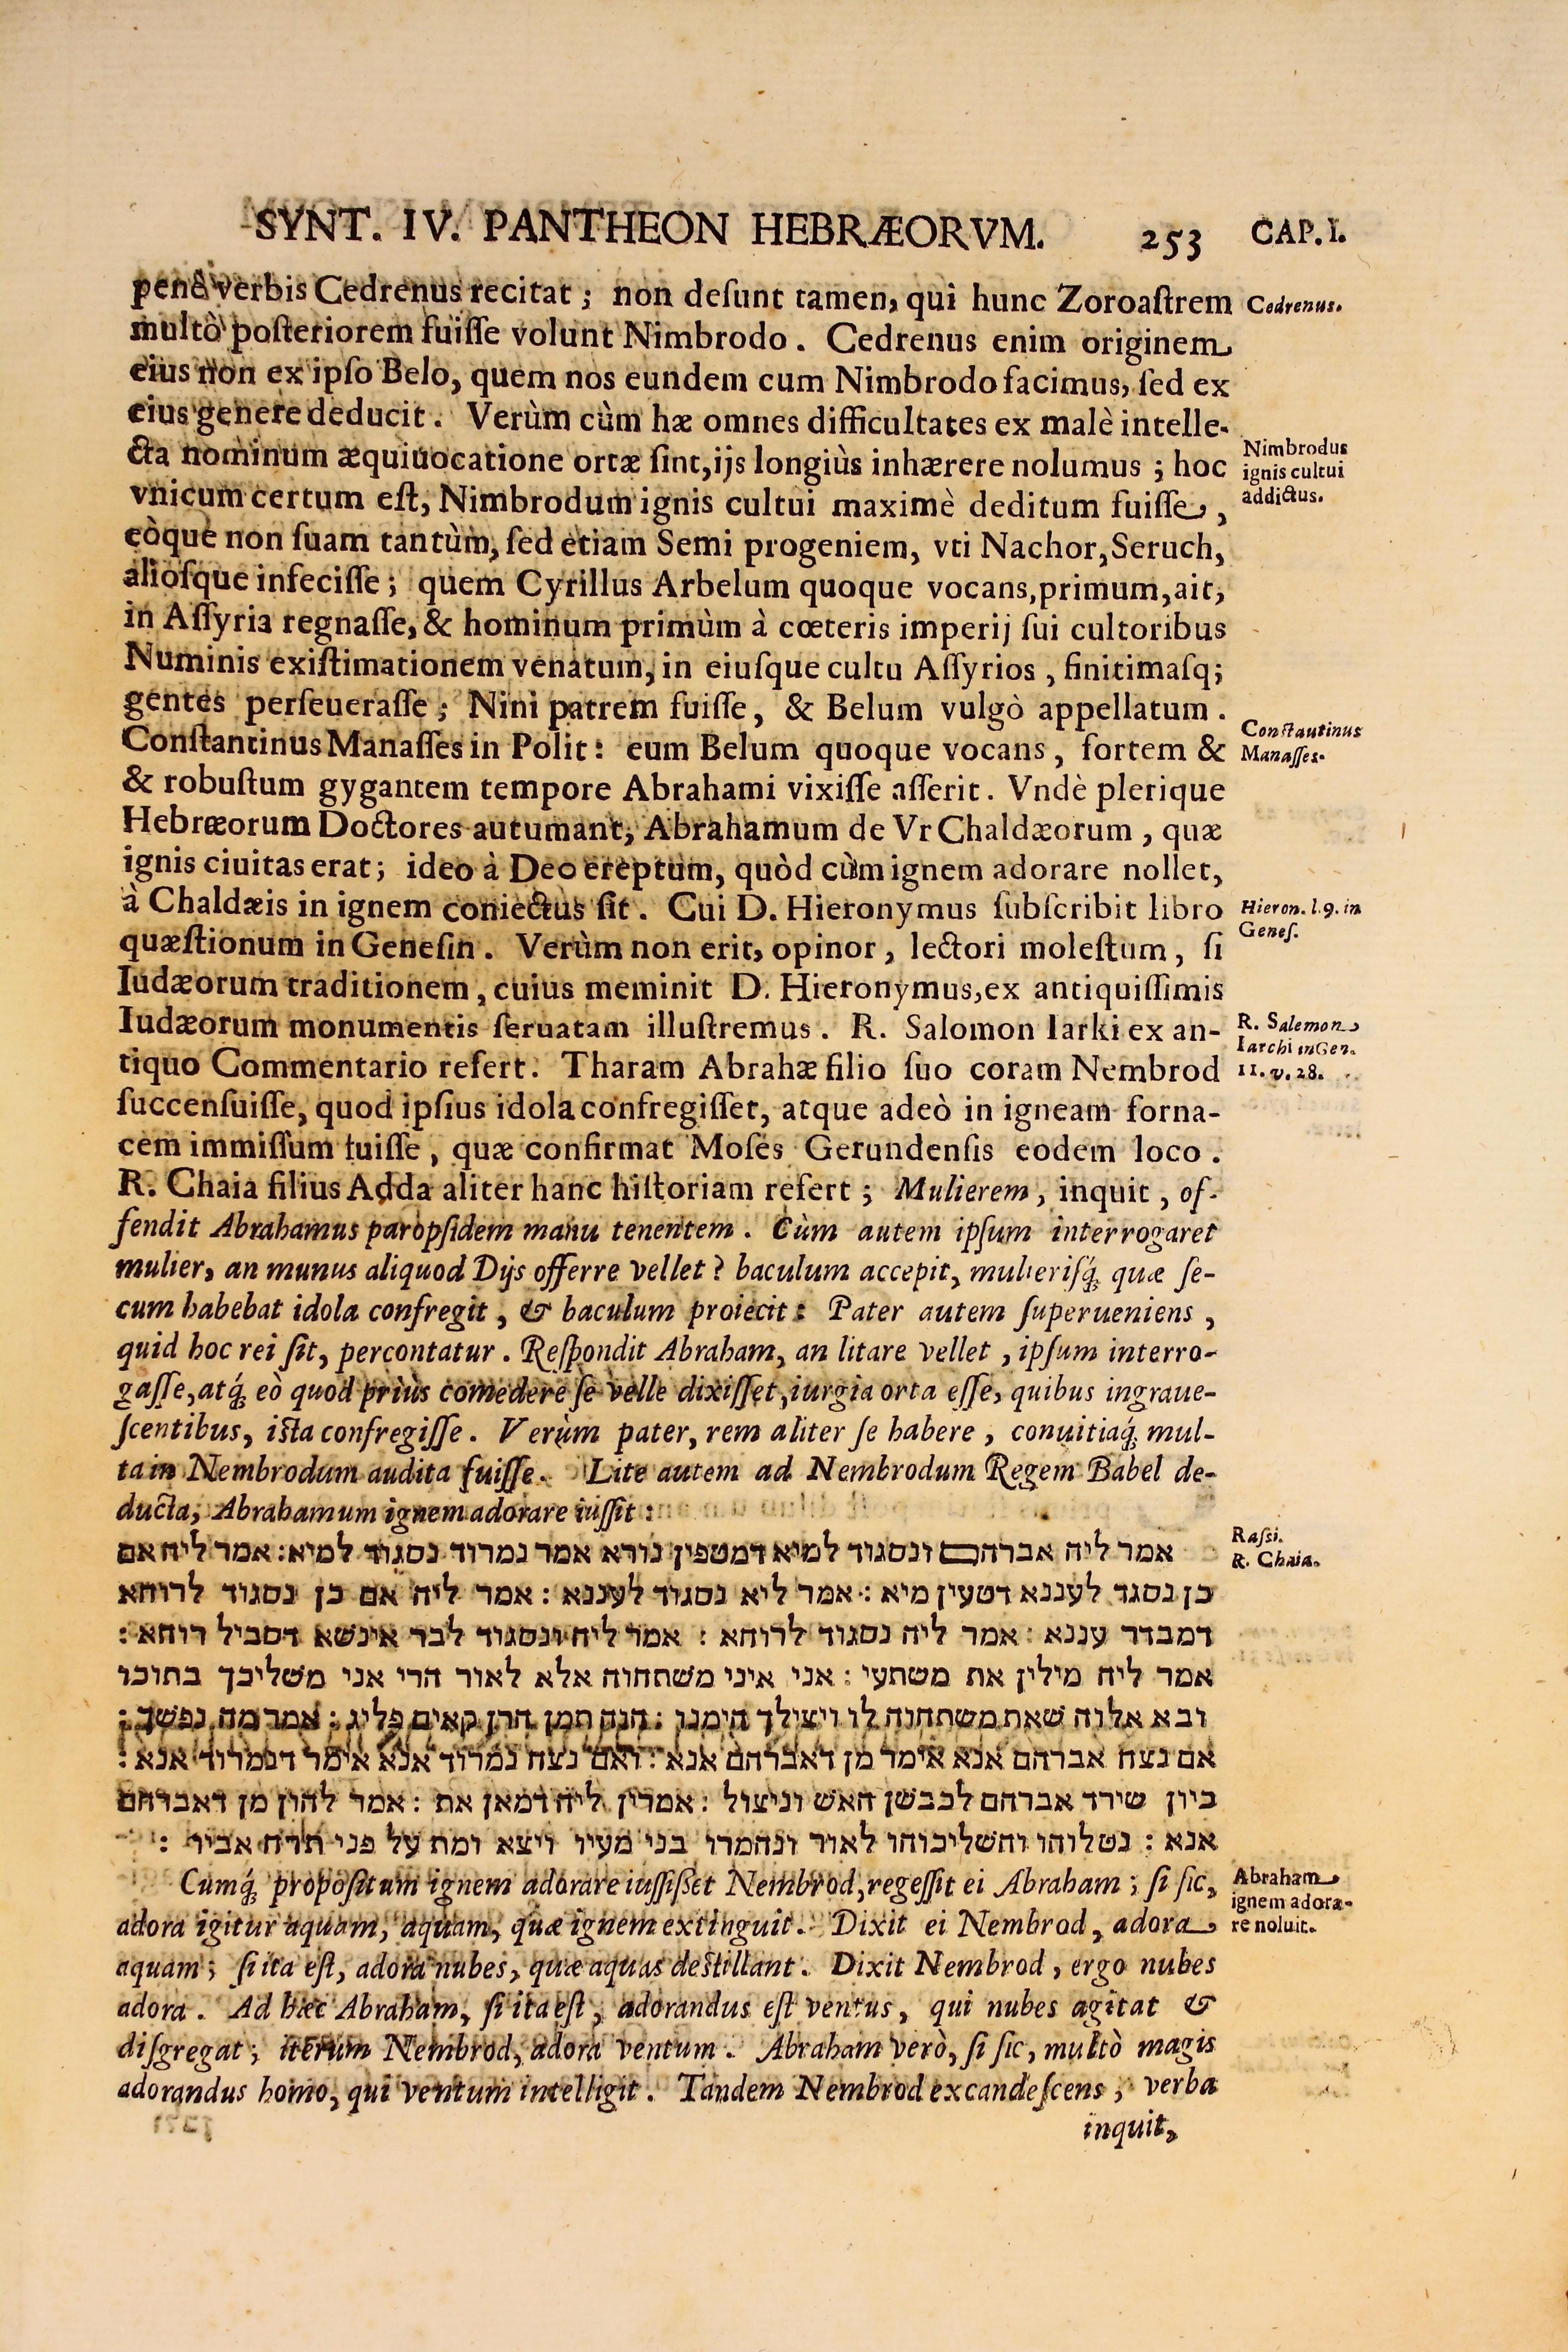 SYNT. IV. PANTHEON HEBRÆORVM. 253 CAP. I.
penè verbis Cedrenus recitat ; non deſunt tamen, qui hunc Zoroaſtrem
Cedrenus.
multò poſteriorem fuiſſe volunt Nimbrodo . Cedrenus enim originem
eius non ex ipſo Belo, quem nos eundem cum Nimbrodo facimus, ſed ex
eius genere deducit . Verùm cùm hæ omnes difficultates ex malè intelle-
cta nominum æquiuocatione ortæ ſint, ijs longiùs inhærere nolumus ; hoc
Nimbrodus
ignis cultui
addictus.
vnicum certum eſt, Nimbrodum ignis cultui maximè deditum fuiſſe ,
eòque non ſuam tantùm, ſed etiam Semi progeniem, vti Nachor, Seruch,
alioſque infeciſſe ; quem Cyrillus Arbelum quoque vocans, primum, ait,
in Aſſyria regnaſſe, & hominum primùm à cœteris imperij ſui cultoribus
Numinis exiſtimationem venatum, in eiuſque cultu Aſſyrios , finitimaſq;
gentes perſeueraſſe ; Nini patrem fuiſſe, & Belum vulgò appellatum .
Conſtantinus Manaſſes in Polit : eum Belum quoque vocans , fortem &
Conſtautinus
Manaſſes.
& robuſtum gygantem tempore Abrahami vixiſſe aſſerit . Vndè plerique
Hebræorum Doctores autumant, Abrahamum de Vr Chaldæorum , quæ
ignis ciuitas erat ; ideo à Deo ereptum, quòd cùm ignem adorare nollet,
à Chaldæis in ignem coniectus ſit . Cui D. Hieronymus ſubſcribit libro
Hieron. l. 9. in
Geneſ.
quæſtionum in Geneſin . Verùm non erit, opinor , lectori moleſtum , ſi
Iudæorum traditionem , cuius meminit D. Hieronymus, ex antiquiſſimis
Iudæorum monumentis ſeruatam illuſtremus . R. Salomon Iarki ex an-
R. Salemon
Iarchi in Gen.
11. v. 28.
tiquo Commentario refert . Tharam Abrahæ filio ſuo coram Nembrod
ſuccenſuiſſe, quod ipſius idola confregiſſet, atque adeò in igneam forna-
cem immiſſum fuiſſe , quæ confirmat Moſes Gerundenſis eodem loco .
R. Chaia filius Adda aliter hanc hiſtoriam refert ; Mulierem , inquit , of-
fendit Abrahamus paropſidem manu tenentem . Cùm autem ipſum interrogaret
mulier, an munus aliquod Dijs offerre vellet ? baculum accepit, mulieriſq́; quæ ſe-
cum habebat idola confregit , & baculum proiecit : Pater autem ſuperueniens ,
quid hoc rei ſit, percontatur . Reſpondit Abraham, an litare vellet , ipſum interro-
gaſſe, atq́; eò quod priùs comedere ſe velle dixiſſet, iurgia orta eſſe, quibus ingraue-
ſcentibus, iſta confregiſſe . Verùm pater, rem aliter ſe habere , conuitiaq́; mul-
ta in Nembrodum audita fuiſſe . Lite autem ad Nembrodum Regem Babel de-
ducta, Abrahamum ignem adorare iuſſit :
Raſsi.
R. Chaia.
אמר ליה אברהם ונסגוד למיא דמטפין נורא אמר נמרוד נסגוד למיא : אמר ליה אם
כן נסגד לעננא דטעין מיא : אמר ליא נסגוד לעננא : אמר ליה אם כן נסגוד לרוחא
דמבדר עננא : אמר ליה נסגוד לרוחא : אמר ליה ונסגוד לבר אינשא דסביל רוחא :
אמר ליה מילין את משתעי : אני איני משתחוה אלא לאור הרי אני משליכך בתוכו
ובא אלוה שאת משתחוה לו ויצילך הימנו : הנה תמן הרן קאים פליג : אמר מה נפשך :
אם נצח אברהם אנא אימר מן דאברהם אנא : ואם נצח נמרוד אנא אימר דנמרוד אנא :
כיון שירד אברהם לכבשן האש וניצול : אמרין ליה דמאן את : אמר להון מן דאברהם
אנא : נטלוהו והשליכוהו לאור ונחמרו בני מעיו ויצא ומת על פני תרח אביו :
Cumq́; propoſitum ignem adorare iuſſiſſet Nembrod, regeſſit ei Abraham ; ſi ſic,
Abraham
ignem adora-
re noluit.
adora igitur aquam, aquam, quæ ignem extinguit . Dixit ei Nembrod , adora
aquam ; ſi ita eſt, adora nubes, quæ aquas deſtillant . Dixit Nembrod , ergo nubes
adora . Ad hæc Abraham, ſi ita eſt, adorandus eſt ventus, qui nubes agitat &
diſgregat ; iterum Nembrod, adora ventum . Abraham verò, ſi ſic, multò magis
adorandus homo, qui ventum intelligit . Tandem Nembrod excandeſcens , verba
inquit,